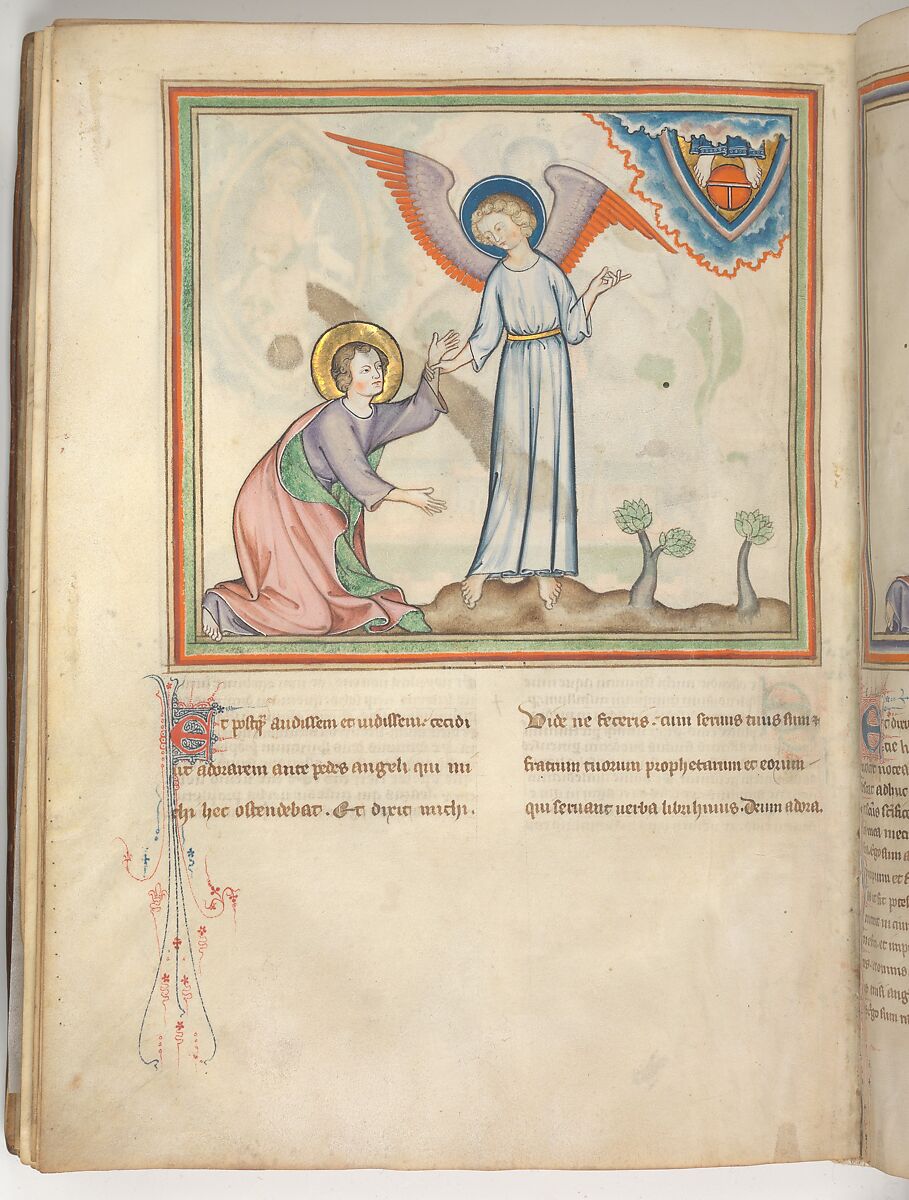 Et postq̃ audissem et uidissem. cecidi
ut adorarem ante pedes angeli qui mi
chi hec ostendebat. Et dixit michi.
Vide ne feceris. cum seruus tuus sum ⁊
fratrum tuorum prophetarum et eorum
qui seruant uerba libri huius. Deum adora.